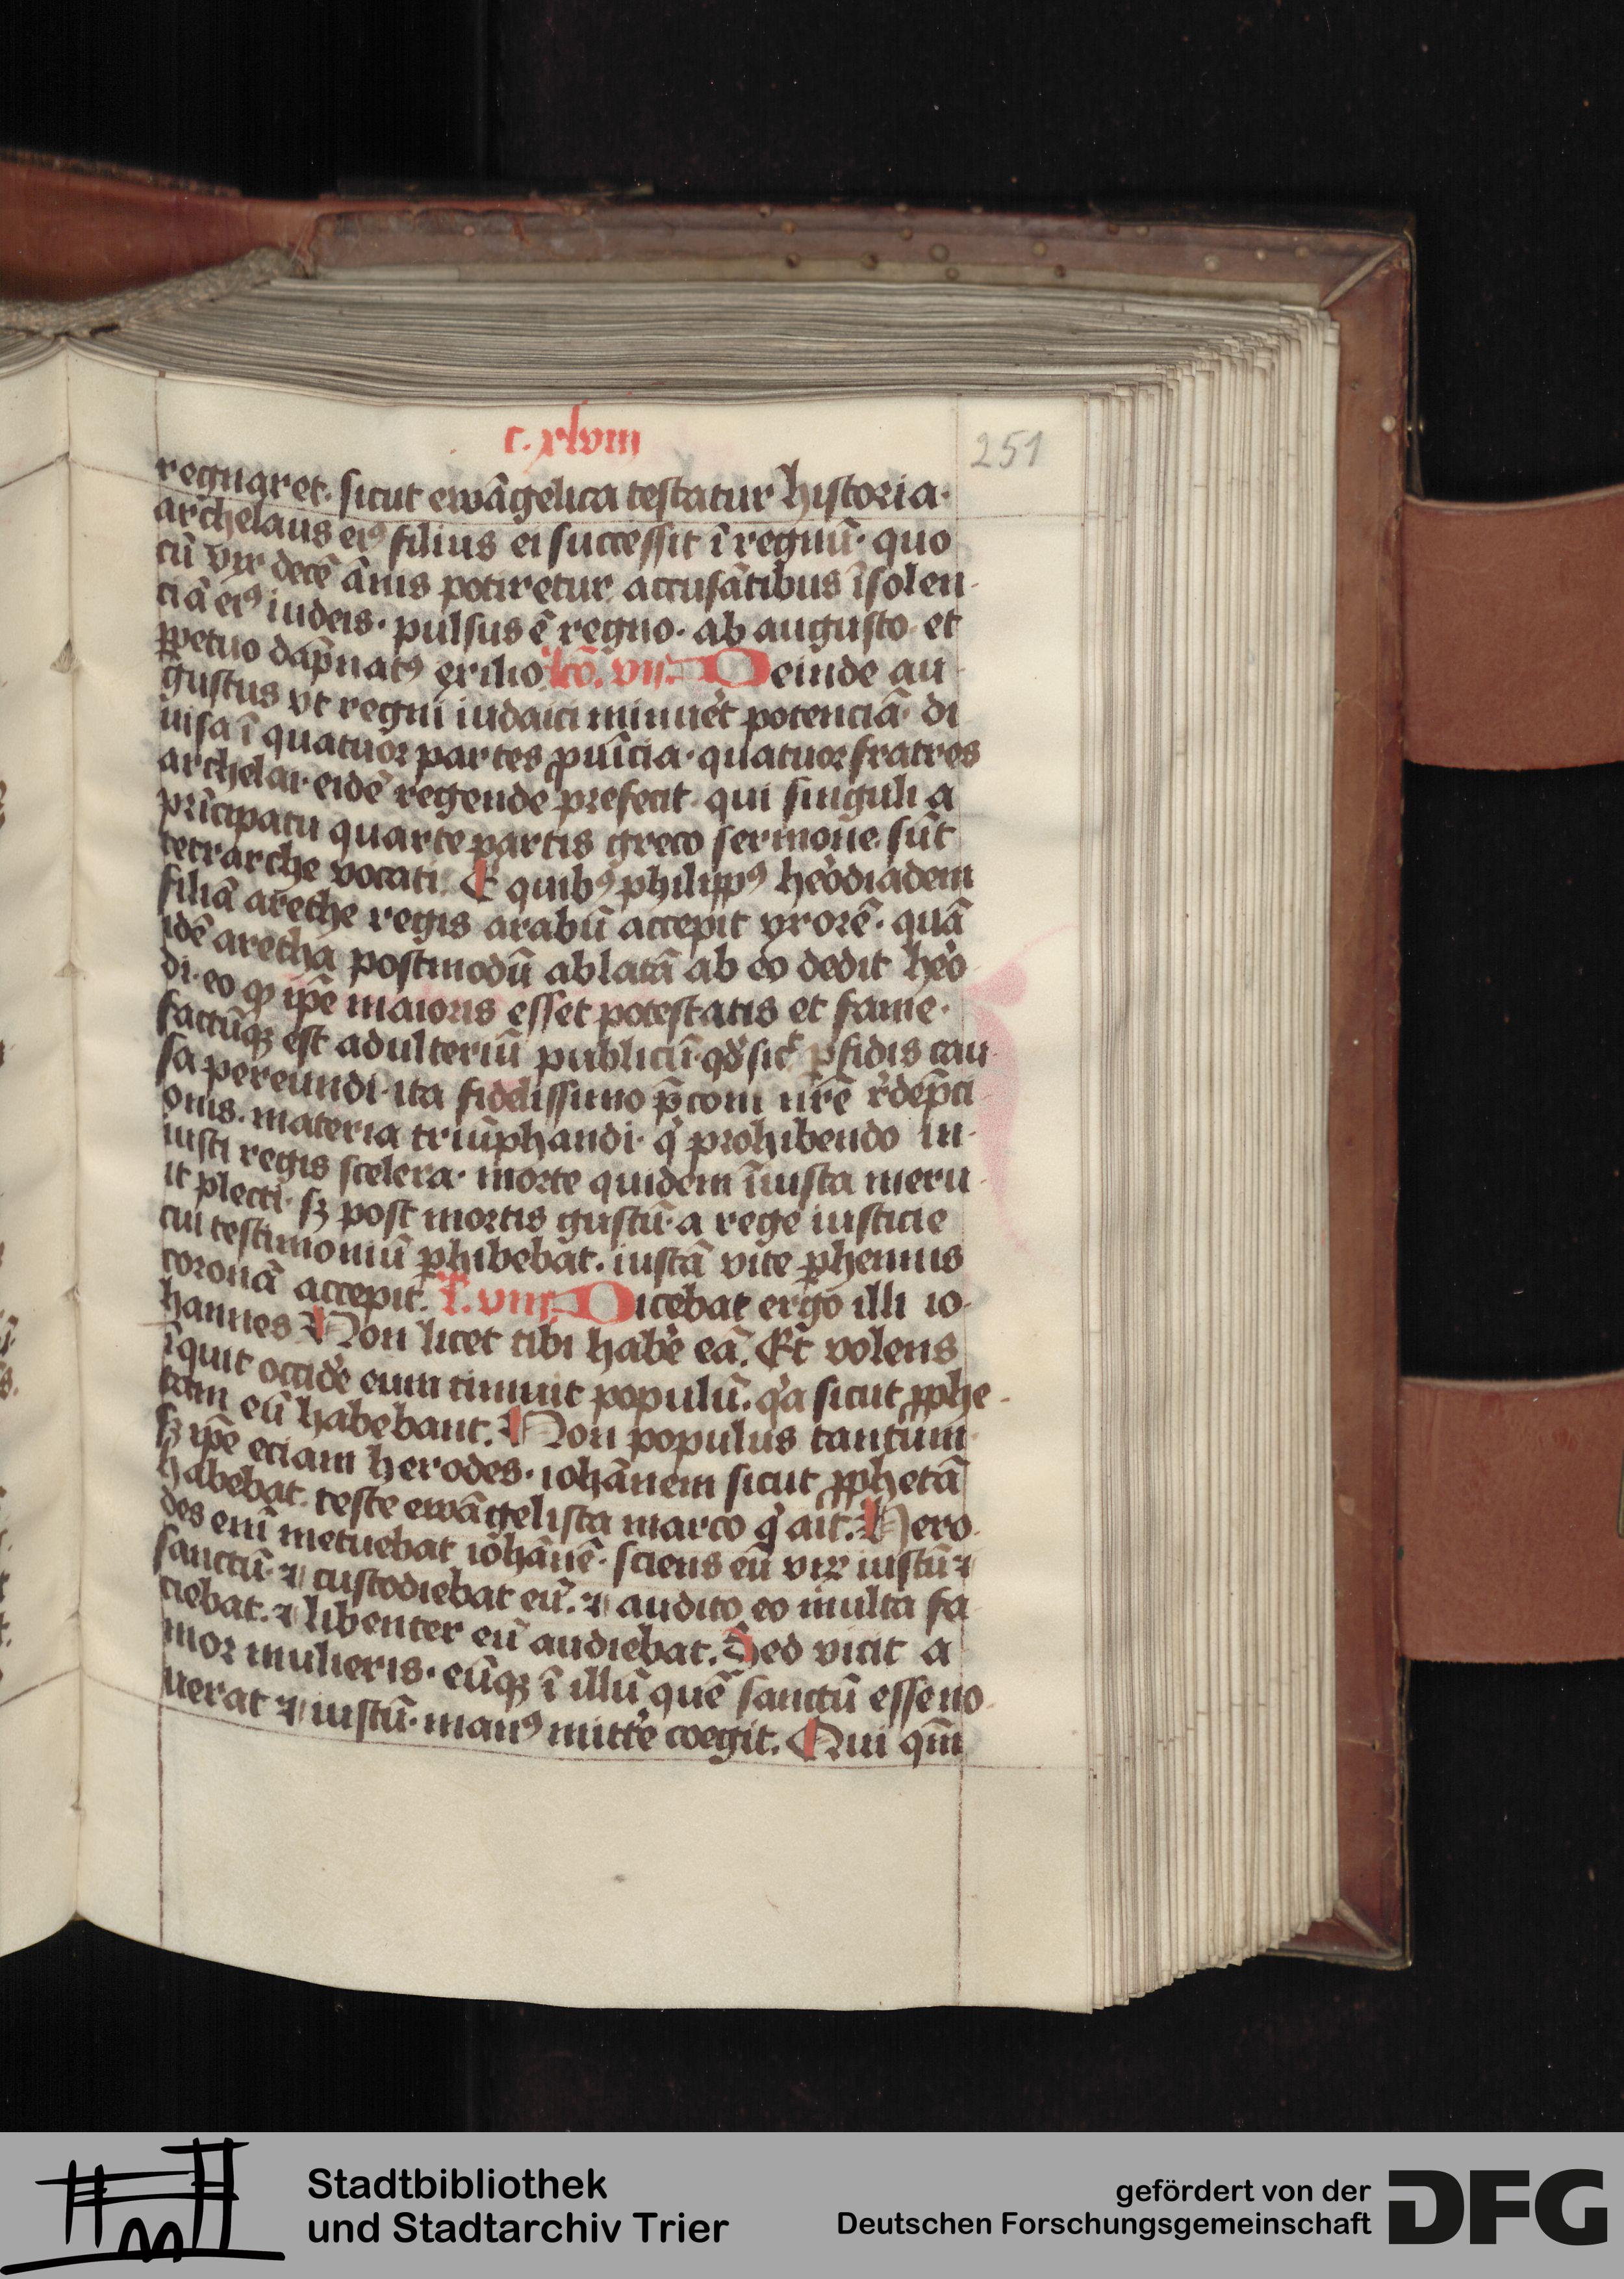 c. xlviii
251
regnaret. sicut ewãgelica testatur historia.
archelaus eiꝰ filius ei successit ĩ regnũ. quo
cũ vix decẽ ãnis potiretur accusãtibus ĩsolen
ciã eiꝰ iudeis. pulsus ẽ regno. ab augusto et
ꝑpetuo dãpnatꝰ exilio. lcõ. vii. Deinde au
gustus vt regni iudaici minuẽt potenciã. di
uisa ĩ quatuor partes ꝓuĩcia. quatuor fratres
archelai. eidẽ regende prefecit. qui singuli a
prĩcipatu quarte partis greco sermone sũt
tetrarche vocati. E quibꝰ philippꝰ heodiadem
filiã arethe regis arabũ accepit vxorẽ. quã
idẽ aretha postmodũ ablatã ab eo dedit heo
di. eo ꝙ ip̃e maioris esset potestatis et fame.
factũqꝫ est adulteriũ publicũ. qď sic̃ ꝑfidis cau
sa pereundi. ita fidelissimo p̃coni nr̃e rdẽpci
onis. materia triũphandi. q̇ prohibendo in
iusti regis scelera. morte quidem ĩiusta meru
it plecti. sꝫ post mortis gustũ. a rege iusticie
cui testimoniũ ꝑhibebat. iustã vite ꝑhennis
coronã accepit. l. viii. Dicebat ergo illi io
hannes Non licet tibi habe eã. Et volens
ĩquit occide eum timuit populũ. qa sicut ꝓphe
tam eũ habebant. Non populus tantum
sꝫ ip̃e eciam herodes. iohãnem sicut ꝓphetã
habebat. teste ewãgelista marco q̇ ait. Hero
des enĩ metuebat iohãnẽ. sciens eũ vir iustũ ⁊
sanctũ. ⁊ custodiebat eũ. ⁊ audito eo multa fa
ciebat. ⁊ libenter eũ audiebat. Sed vicit a
mor mulieris. eũqꝫ ĩ illũ quẽ sanctũ esse no
uerat ⁊ iustũ. manꝰ mitte coegit. Qui qm̃
Stadtbibliothek
und Stadtarchiv Trier
gefördert von der
Deutschen Forschungsgemeinschaft
DFG